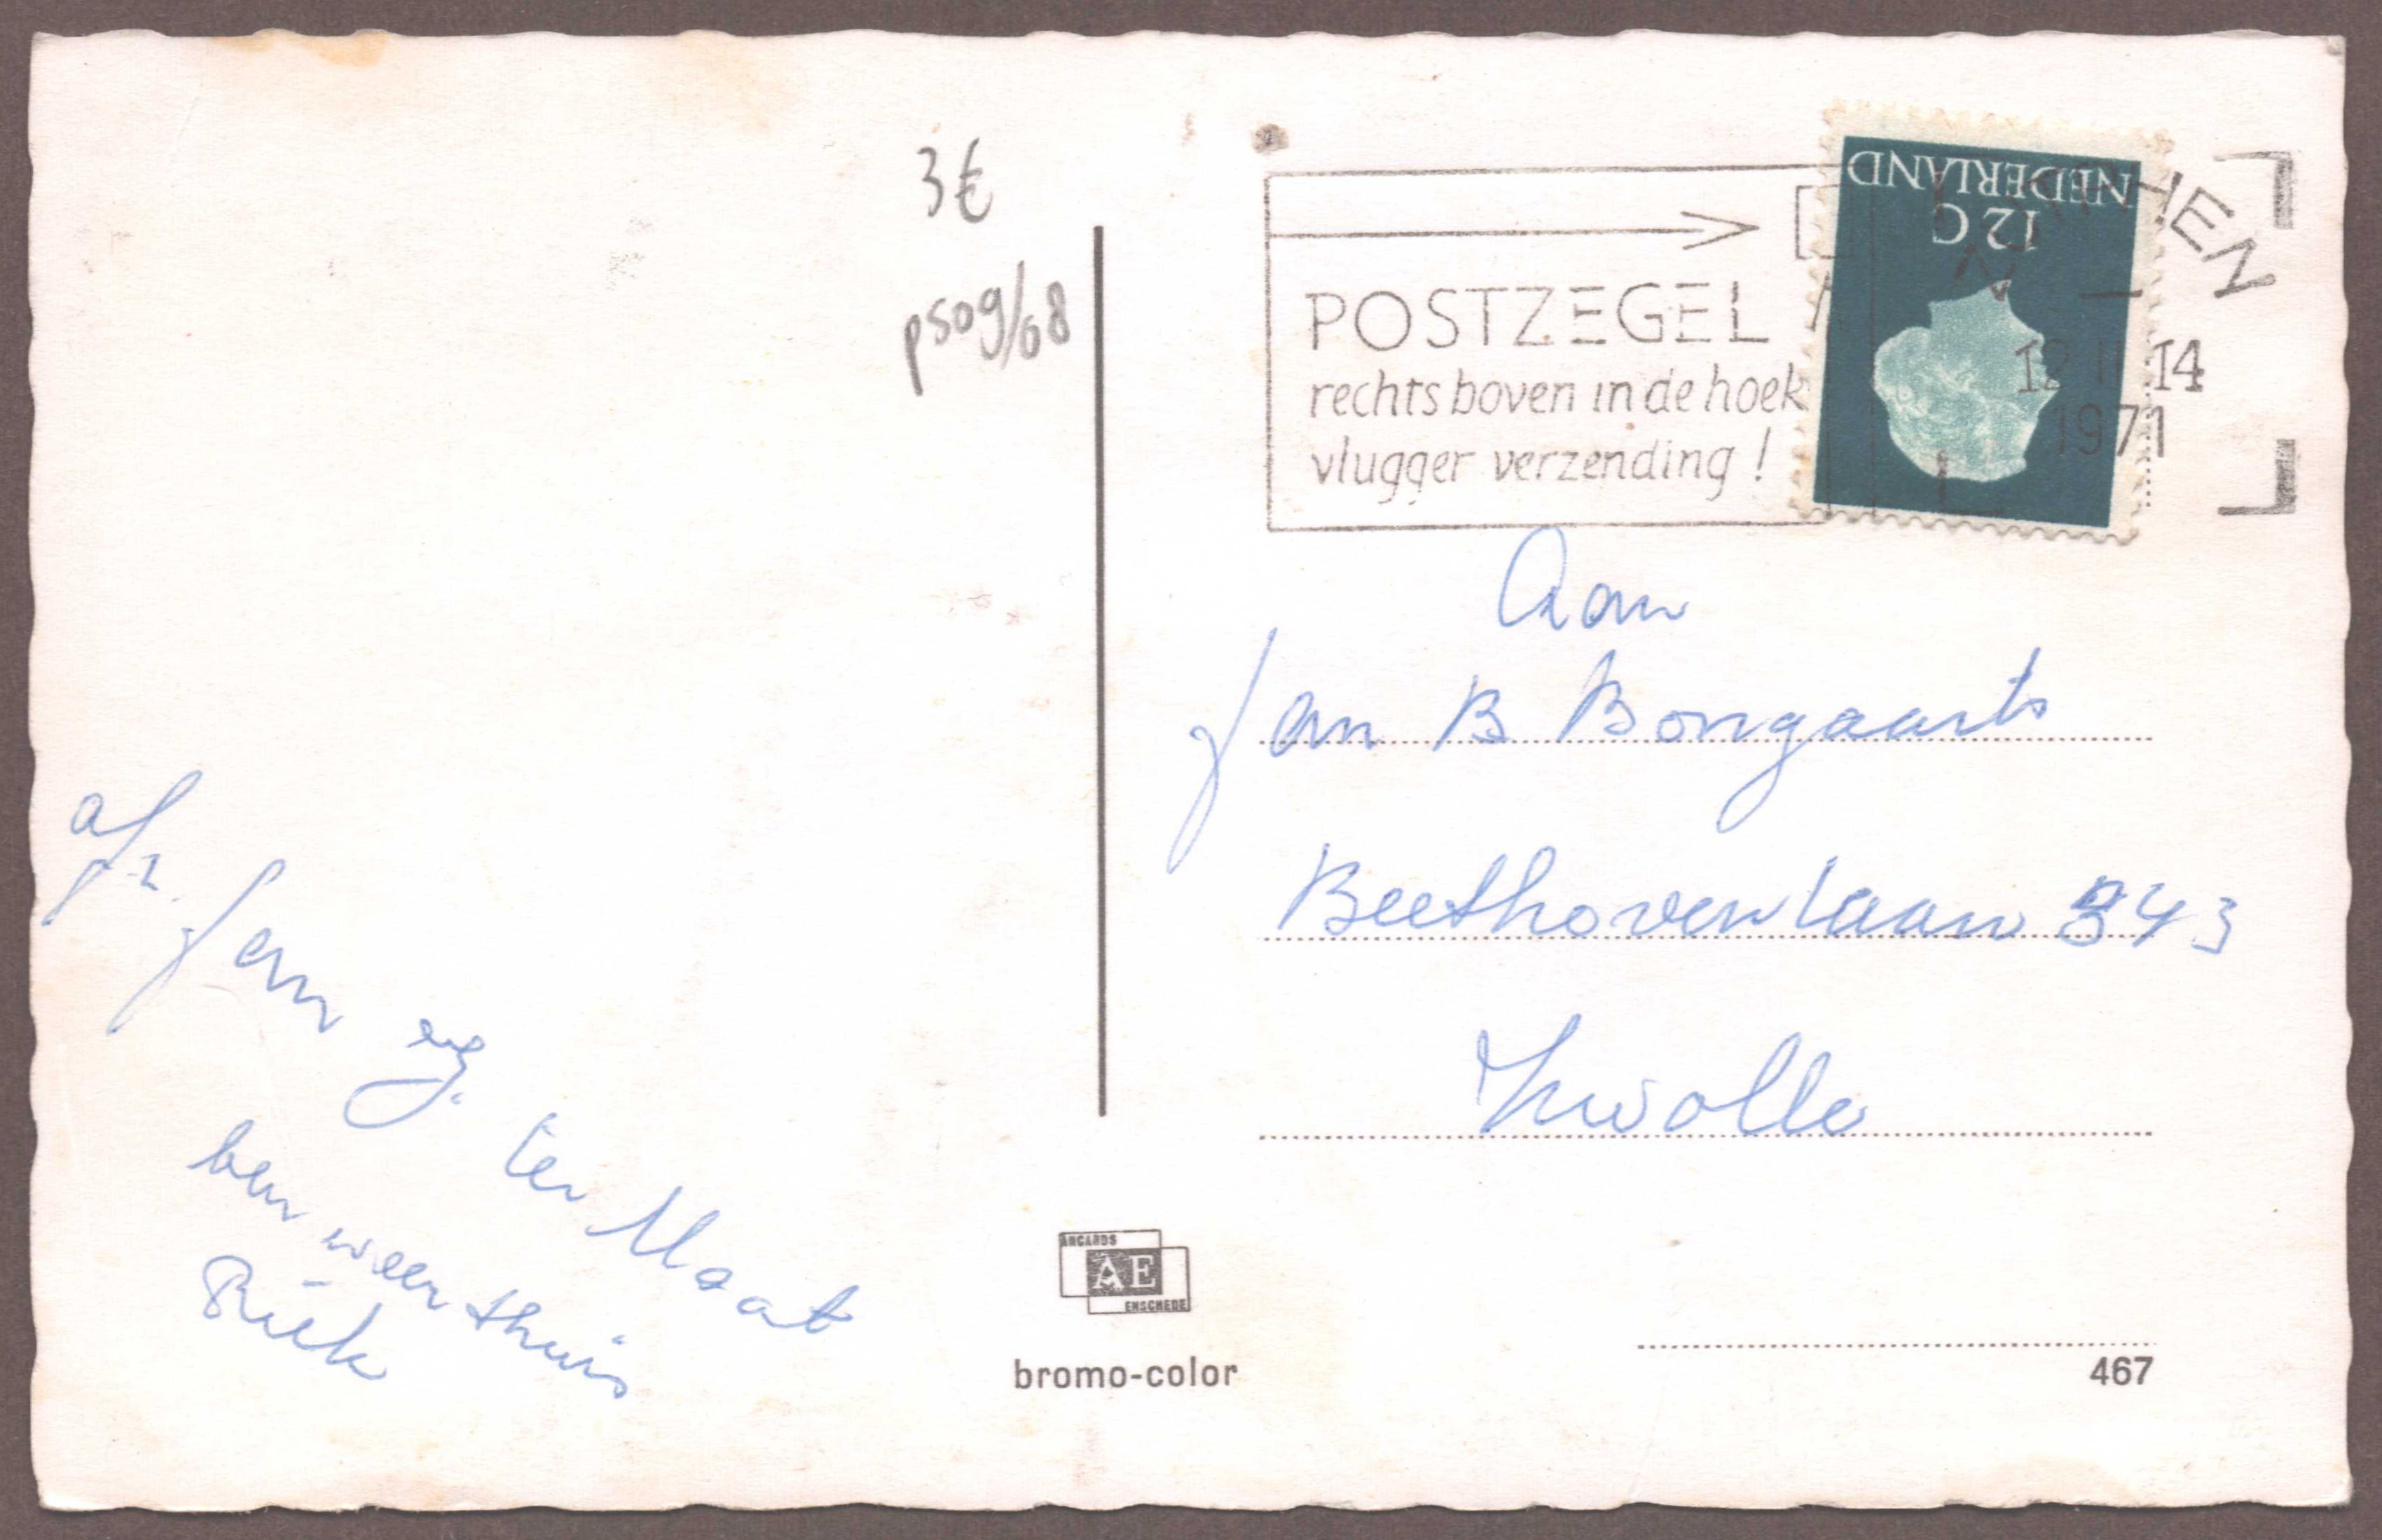 3€
ps09/68
NEDERLAND
12 C
HEN
POSTZEGEL
rechts boven in de hoek
vlugger verzending !
14
1971
Aan
Jan B Bongaarts
Beethovenlaan 343
Zwolle
afz.
Jan ter Maat
ben weer thuis
Riek
ANCARDS
AE
ENSCHEDE
bromo-color
467